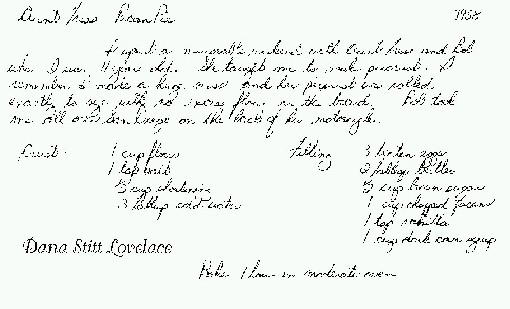 Aunt Pecan Pie 1958
I spent a memorable weekend with Aunt and Bob
when I was 11 years old. She taught me to make piecrust. I
remember I made a huge mess and her piecrust was rolled
exactly to size with no excess flour on the board. Bob took
me all over San Diego on the back of his motorcycle.
Crust: 1 cup flour Filling 3 beaten eggs
1 tsp salt 2 tblsp butter
cup shortening cup brown sugar
3 tblsp cold water 1 cup chopped pecans
1 tsp vanilla
1 cup dark corn syrup
Dana Stitt Lovelace
Bake 1 hour in moderate oven